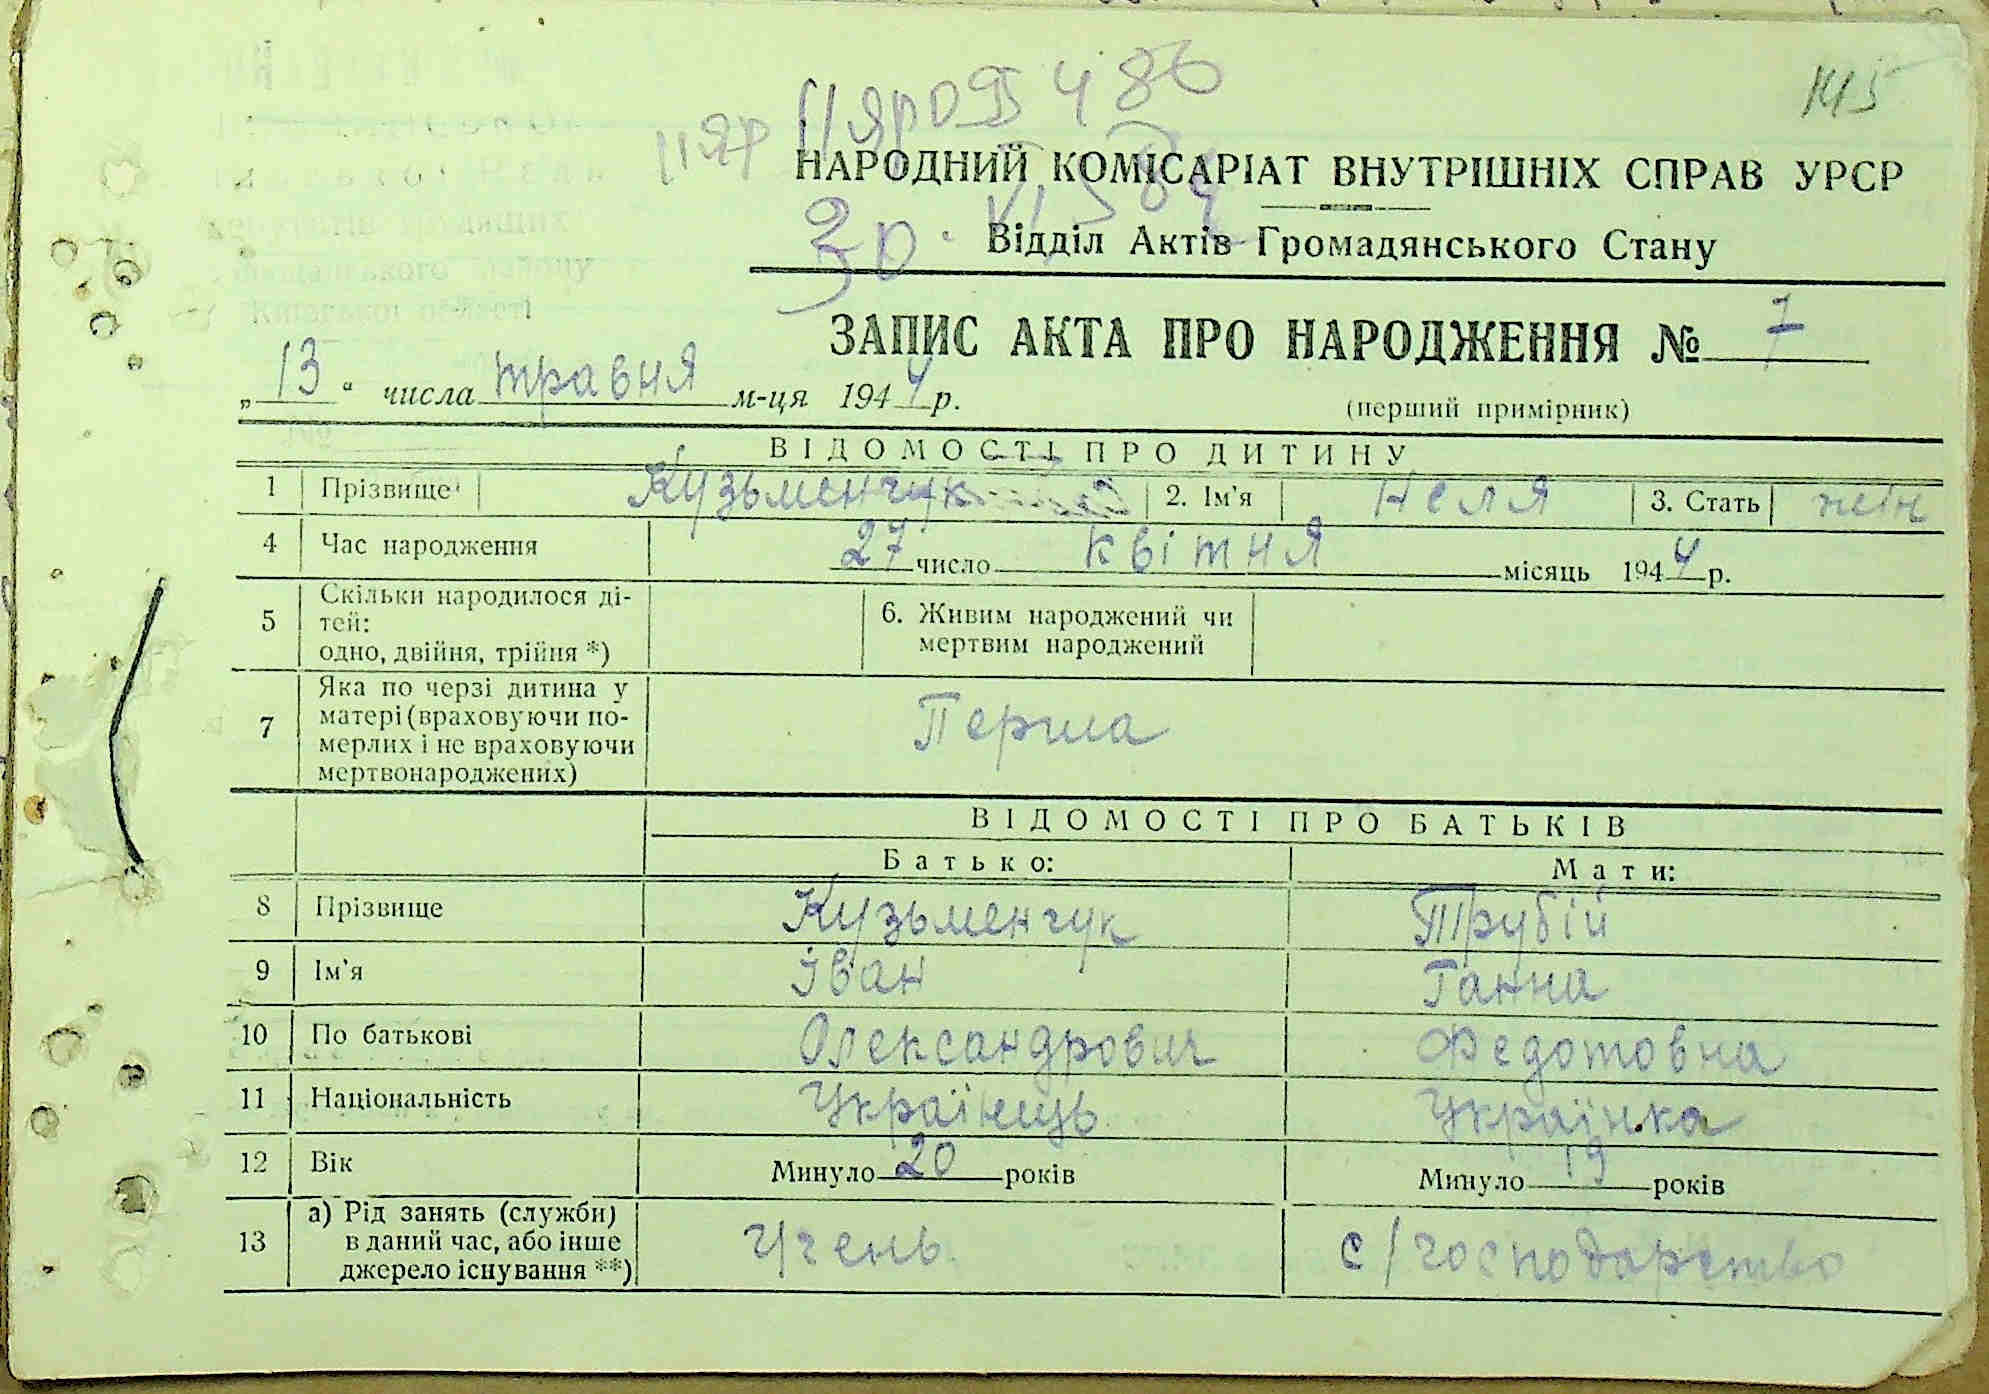 145
ІІЯР ІІЯРОВ 486
НАРОДНИЙ КОМІСАРІАТ ВНУТРІШНІХ СПРАВ УРСР
30.
Відділ Актів Громадянського Стану
ЗАПИС АКТА ПРО НАРОДЖЕННЯ № 7
„13“ числа травня м-ця 1944 р.
(перший примірник)
ВІДОМОСТІ ПРО ДИТИНУ
1 Прізвище Кузьменчук 2. Ім'я Неля 3. Стать жін
4 Час народження 27 число квітня місяць 1944 р.
5 Скільки народилося ді-
тей:
одно, двійня, трійня *)
6. Живим народжений чи
мертвим народжений
7 Яка по черзі дитина у
матері (враховуючи по-
мерлих і не враховуючи
мертвонароджених)
Перша
ВІДОМОСТІ ПРО БАТЬКІВ
Батько: Мати:
8 Прізвище Кузьменчук Трубій
9 Ім'я Іван Ганна
10 По батькові Олександрович Федотовна
11 Національність Українець Українка
12 Вік Минуло 20 років Минуло 19 років
13 а) Рід занять (служби)
в даний час, або інше
джерело існування **)
Учень. с/господарство